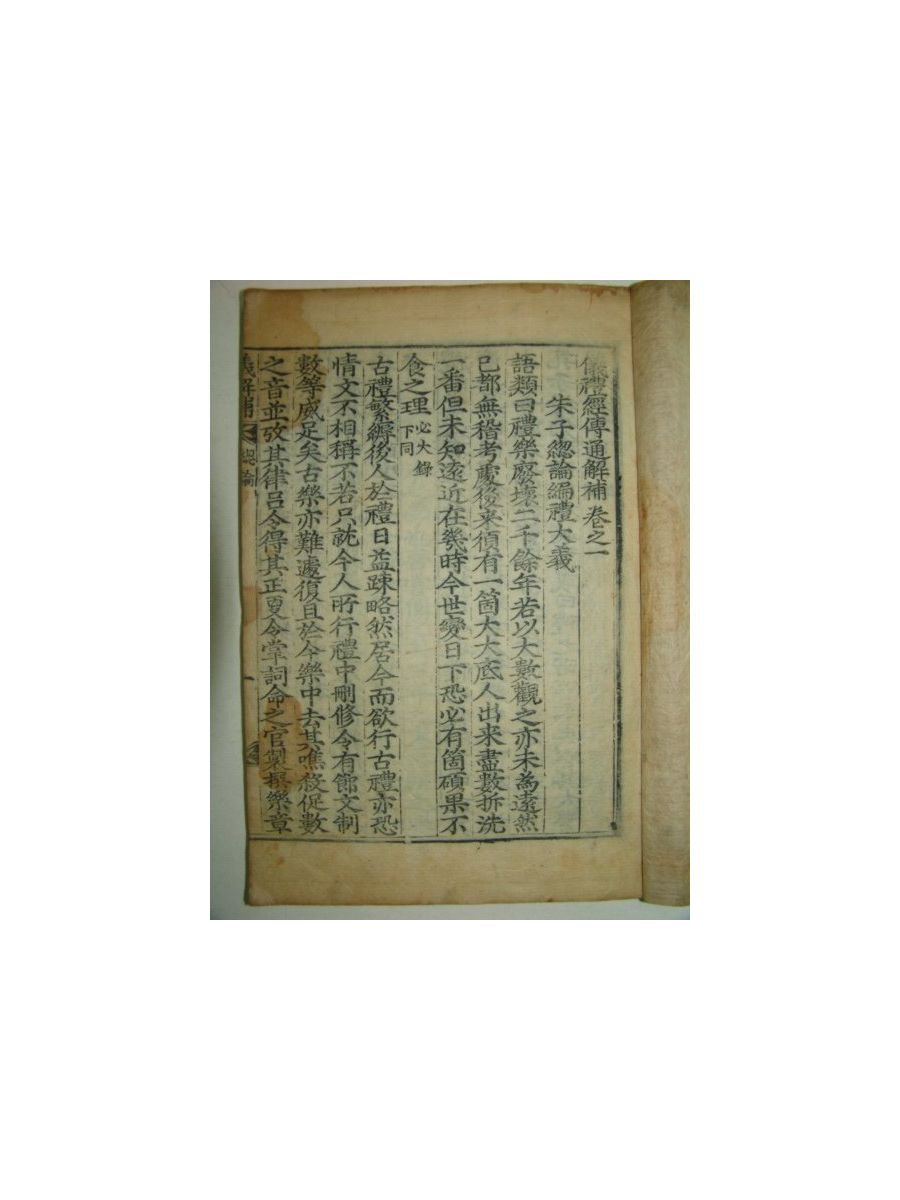 儀禮經傳通解補 卷之一
朱子緫論編禮大義
語類曰禮樂廢壞二千餘年若以大數觀之亦未為遠然
已都無稽考處後来須有一箇大大底人出来盡數拆洗
一番但未知遠近在幾時今世變日下恐必有箇碩果不
食之理 必大錄下同
古禮繁縟後人於禮日益疎略然居今而欲行古禮亦恐
情文不相稱不若只就今人所行禮中刪修令有節文制
數等威足矣古樂亦難遽復且於今樂中去其噍殺促數
之音並攷其律呂令得其正更令掌詞命之官製撰樂章
儀解補 緫論 一